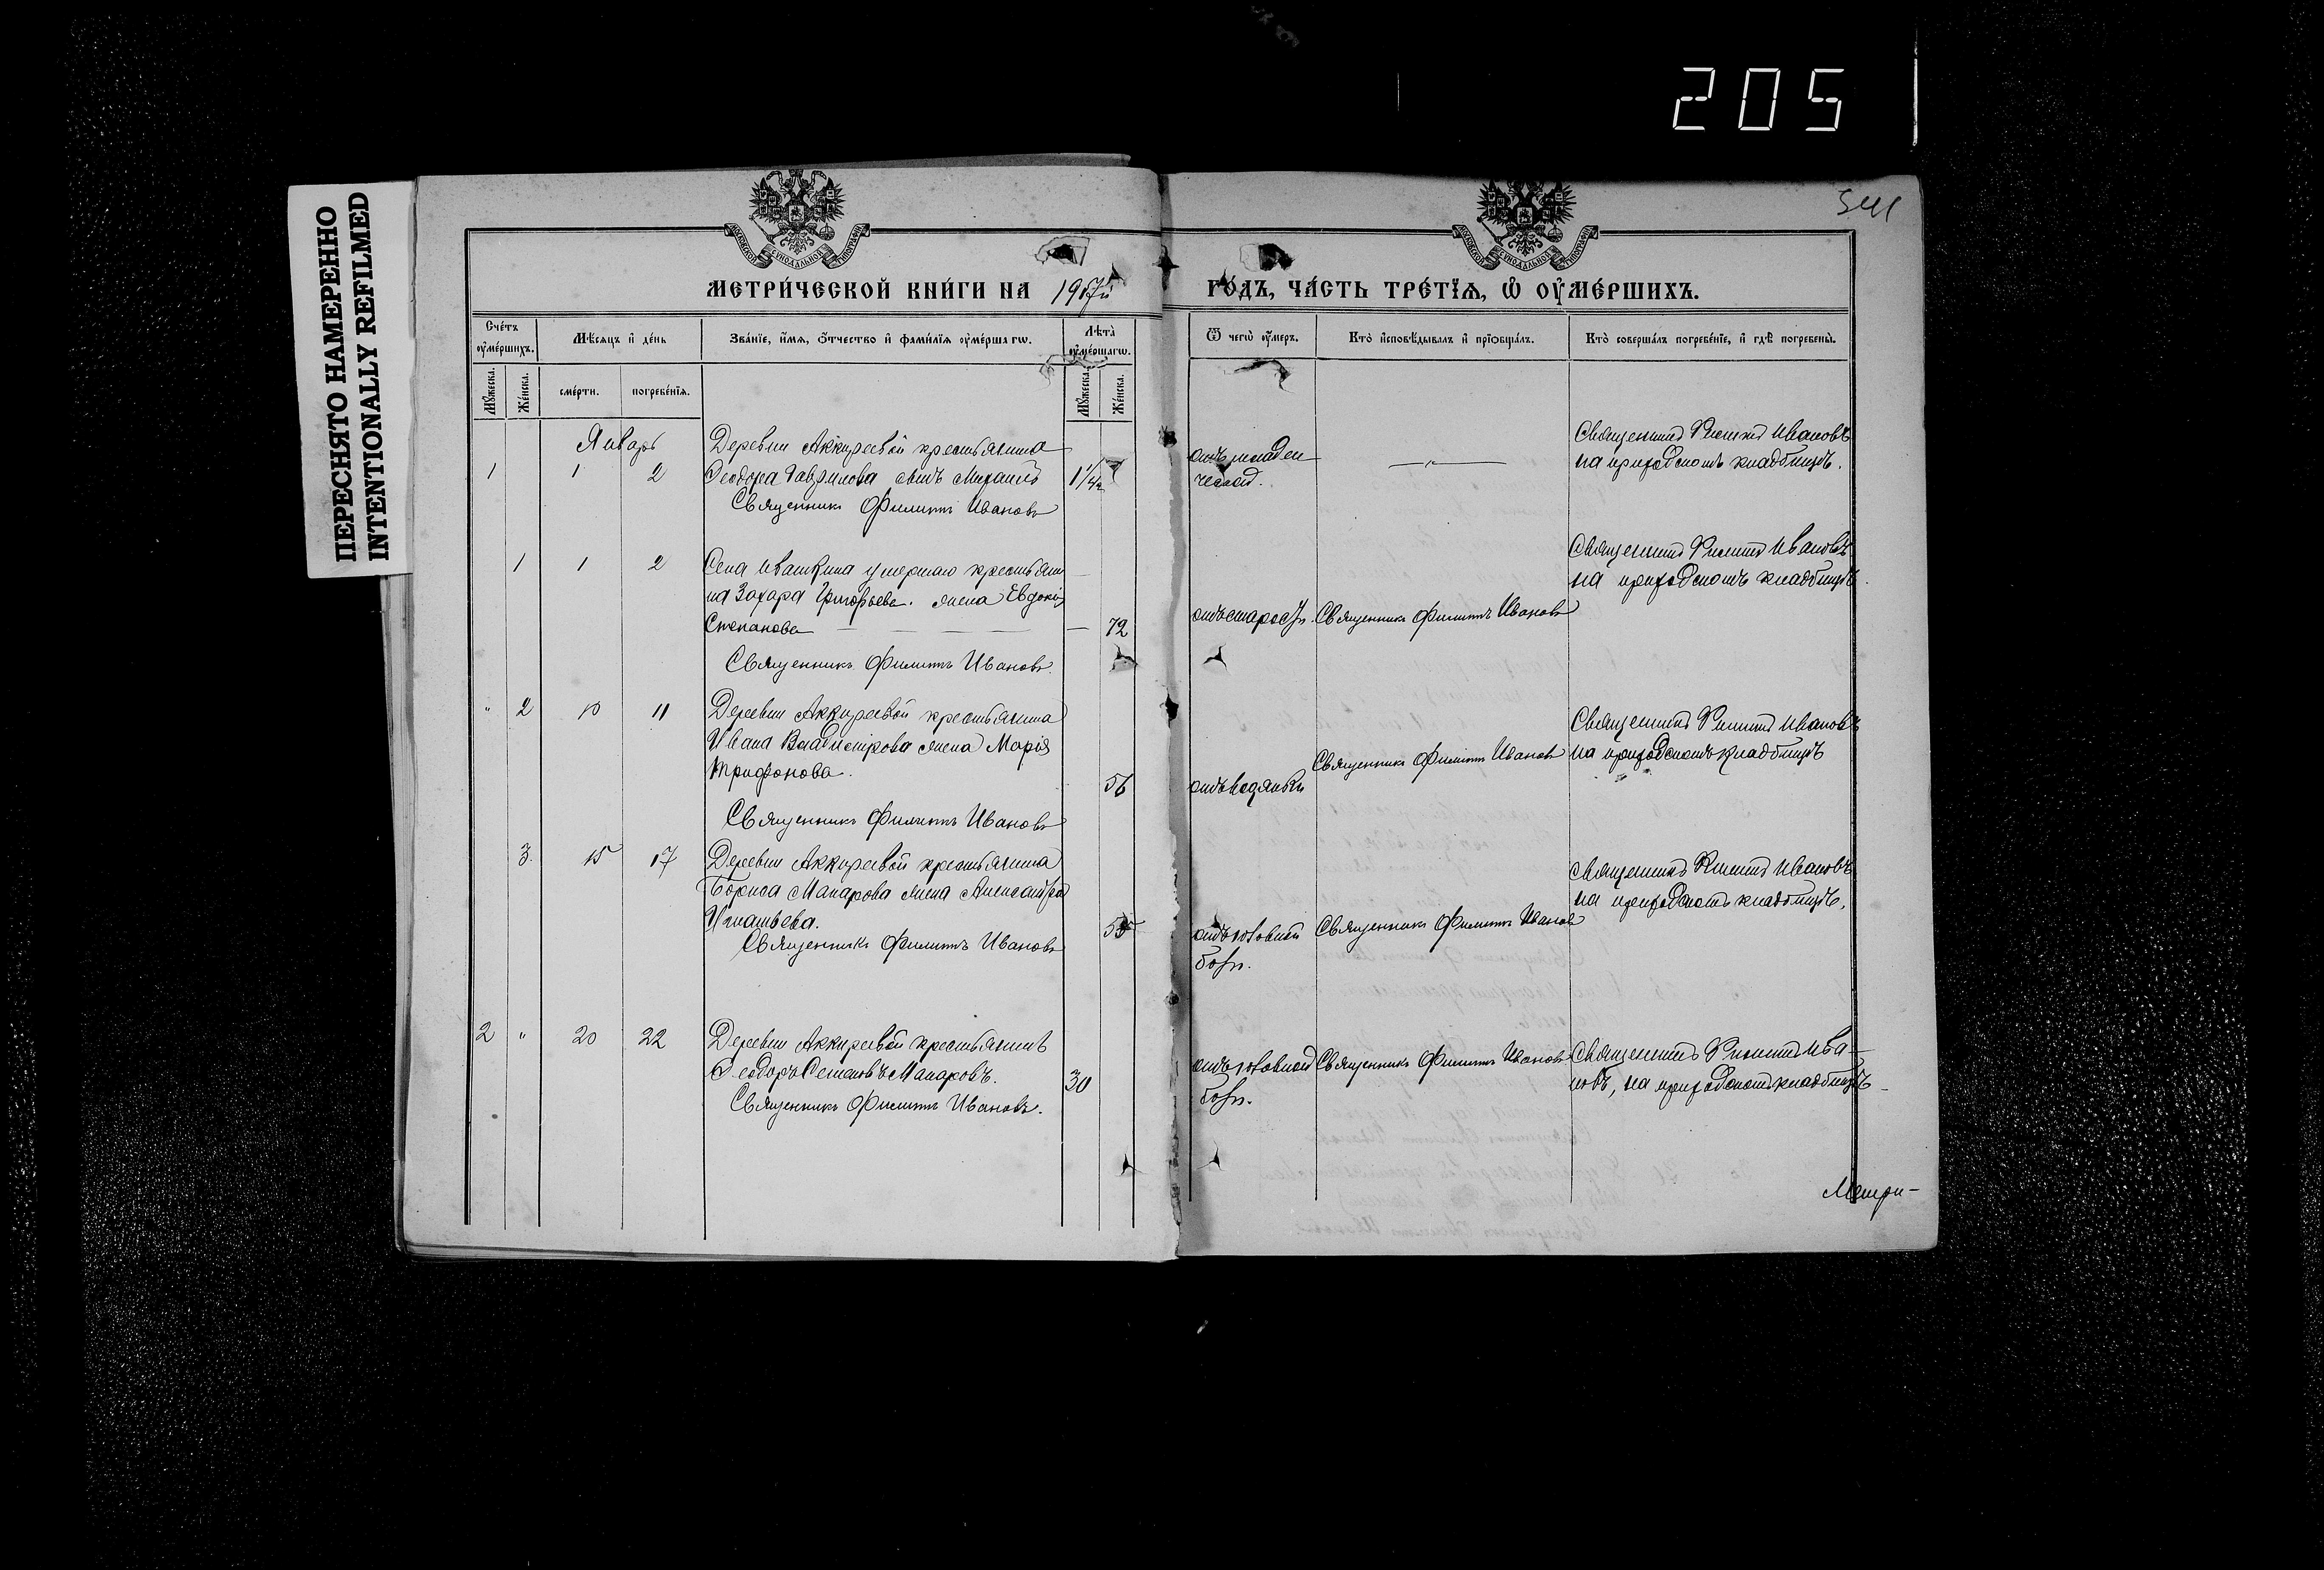 205
ПЕРЕСНЯТО НАМЕРЕННО
INTENTIONALLY REFILMED
541
МЕТРИ́ЧЕСКОЙ КНИ́ГИ НА 1907й
ГО́ДЪ, ЧА́СТЬ ТРЕ́ТЇѦ, Ѡ҆ ОУ҆МЕ́РШИХЪ.
Сче́тъ оу҆ме́ршихъ.
Мѣ́сѧцъ и҆ де́нь
Зва́нїе, и҆́мѧ, ѻ҆́тчество и҆ фами́лїѧ оу҆ме́ршагѡ.
Лѣ́та оу҆ме́ршагѡ.
Ѿ чегѡ̀ оу҆́меръ.
Кто̀ и҆сповѣ́дывалъ и҆ прїѡбща́лъ.
Кто̀ соверша́лъ погребе́нїе, и҆ гдѣ̀ погребены̀.
Мꙋ́жеска.
Же́нска.
сме́рти.
погребе́нїѧ.
Мꙋ́жеска.
Же́нска.
Январь
Деревни Аккиреевой крестьянина
1 1 2 Ѳеодора Гаврилова сынъ Михаилъ 1 1/4
Священникъ Филиппъ Ивановъ
отъ младен
ческой.
—„—
Священникъ Филиппъ Ивановъ
на приходскомъ кладбищѣ.
1 1 2 Села Ивашкина умершаго крестьяни
на Захара Григорьева жена Евдокія
Степанова — — — — 72
Священникъ Филиппъ Ивановъ
отъ старости.
Священникъ Филиппъ Ивановъ
Священникъ Филиппъ Ивановъ
на приходскомъ кладбищѣ.
„ 2 10 11 Деревни Аккиреевой крестьянина
Ивана Владимірова жена Марія
Трифонова. 56
Священникъ Филиппъ Ивановъ
отъ водянки
Священникъ Филиппъ Ивановъ
Священникъ Филиппъ Ивановъ
на приходскомъ кладбищѣ
3 15 17 Деревни Аккиреевой крестьянина
Бориса Макарова жена Александра
Игнатьева. 55
Священникъ Филиппъ Ивановъ
отъ головной
боли.
Священникъ Филиппъ Ивановъ
Священникъ Филиппъ Ивановъ
на приходскомъ кладбищѣ.
2 „ 20 22 Деревни Аккиреевой крестьянинъ
Ѳеодоръ Семеновъ Макаровъ. 30
Священникъ Филиппъ Ивановъ.
отъ головной
боли.
Священникъ Филиппъ Ивановъ
Священникъ Филиппъ Ива-
новъ, на приходскомъ кладбищѣ
Метри-